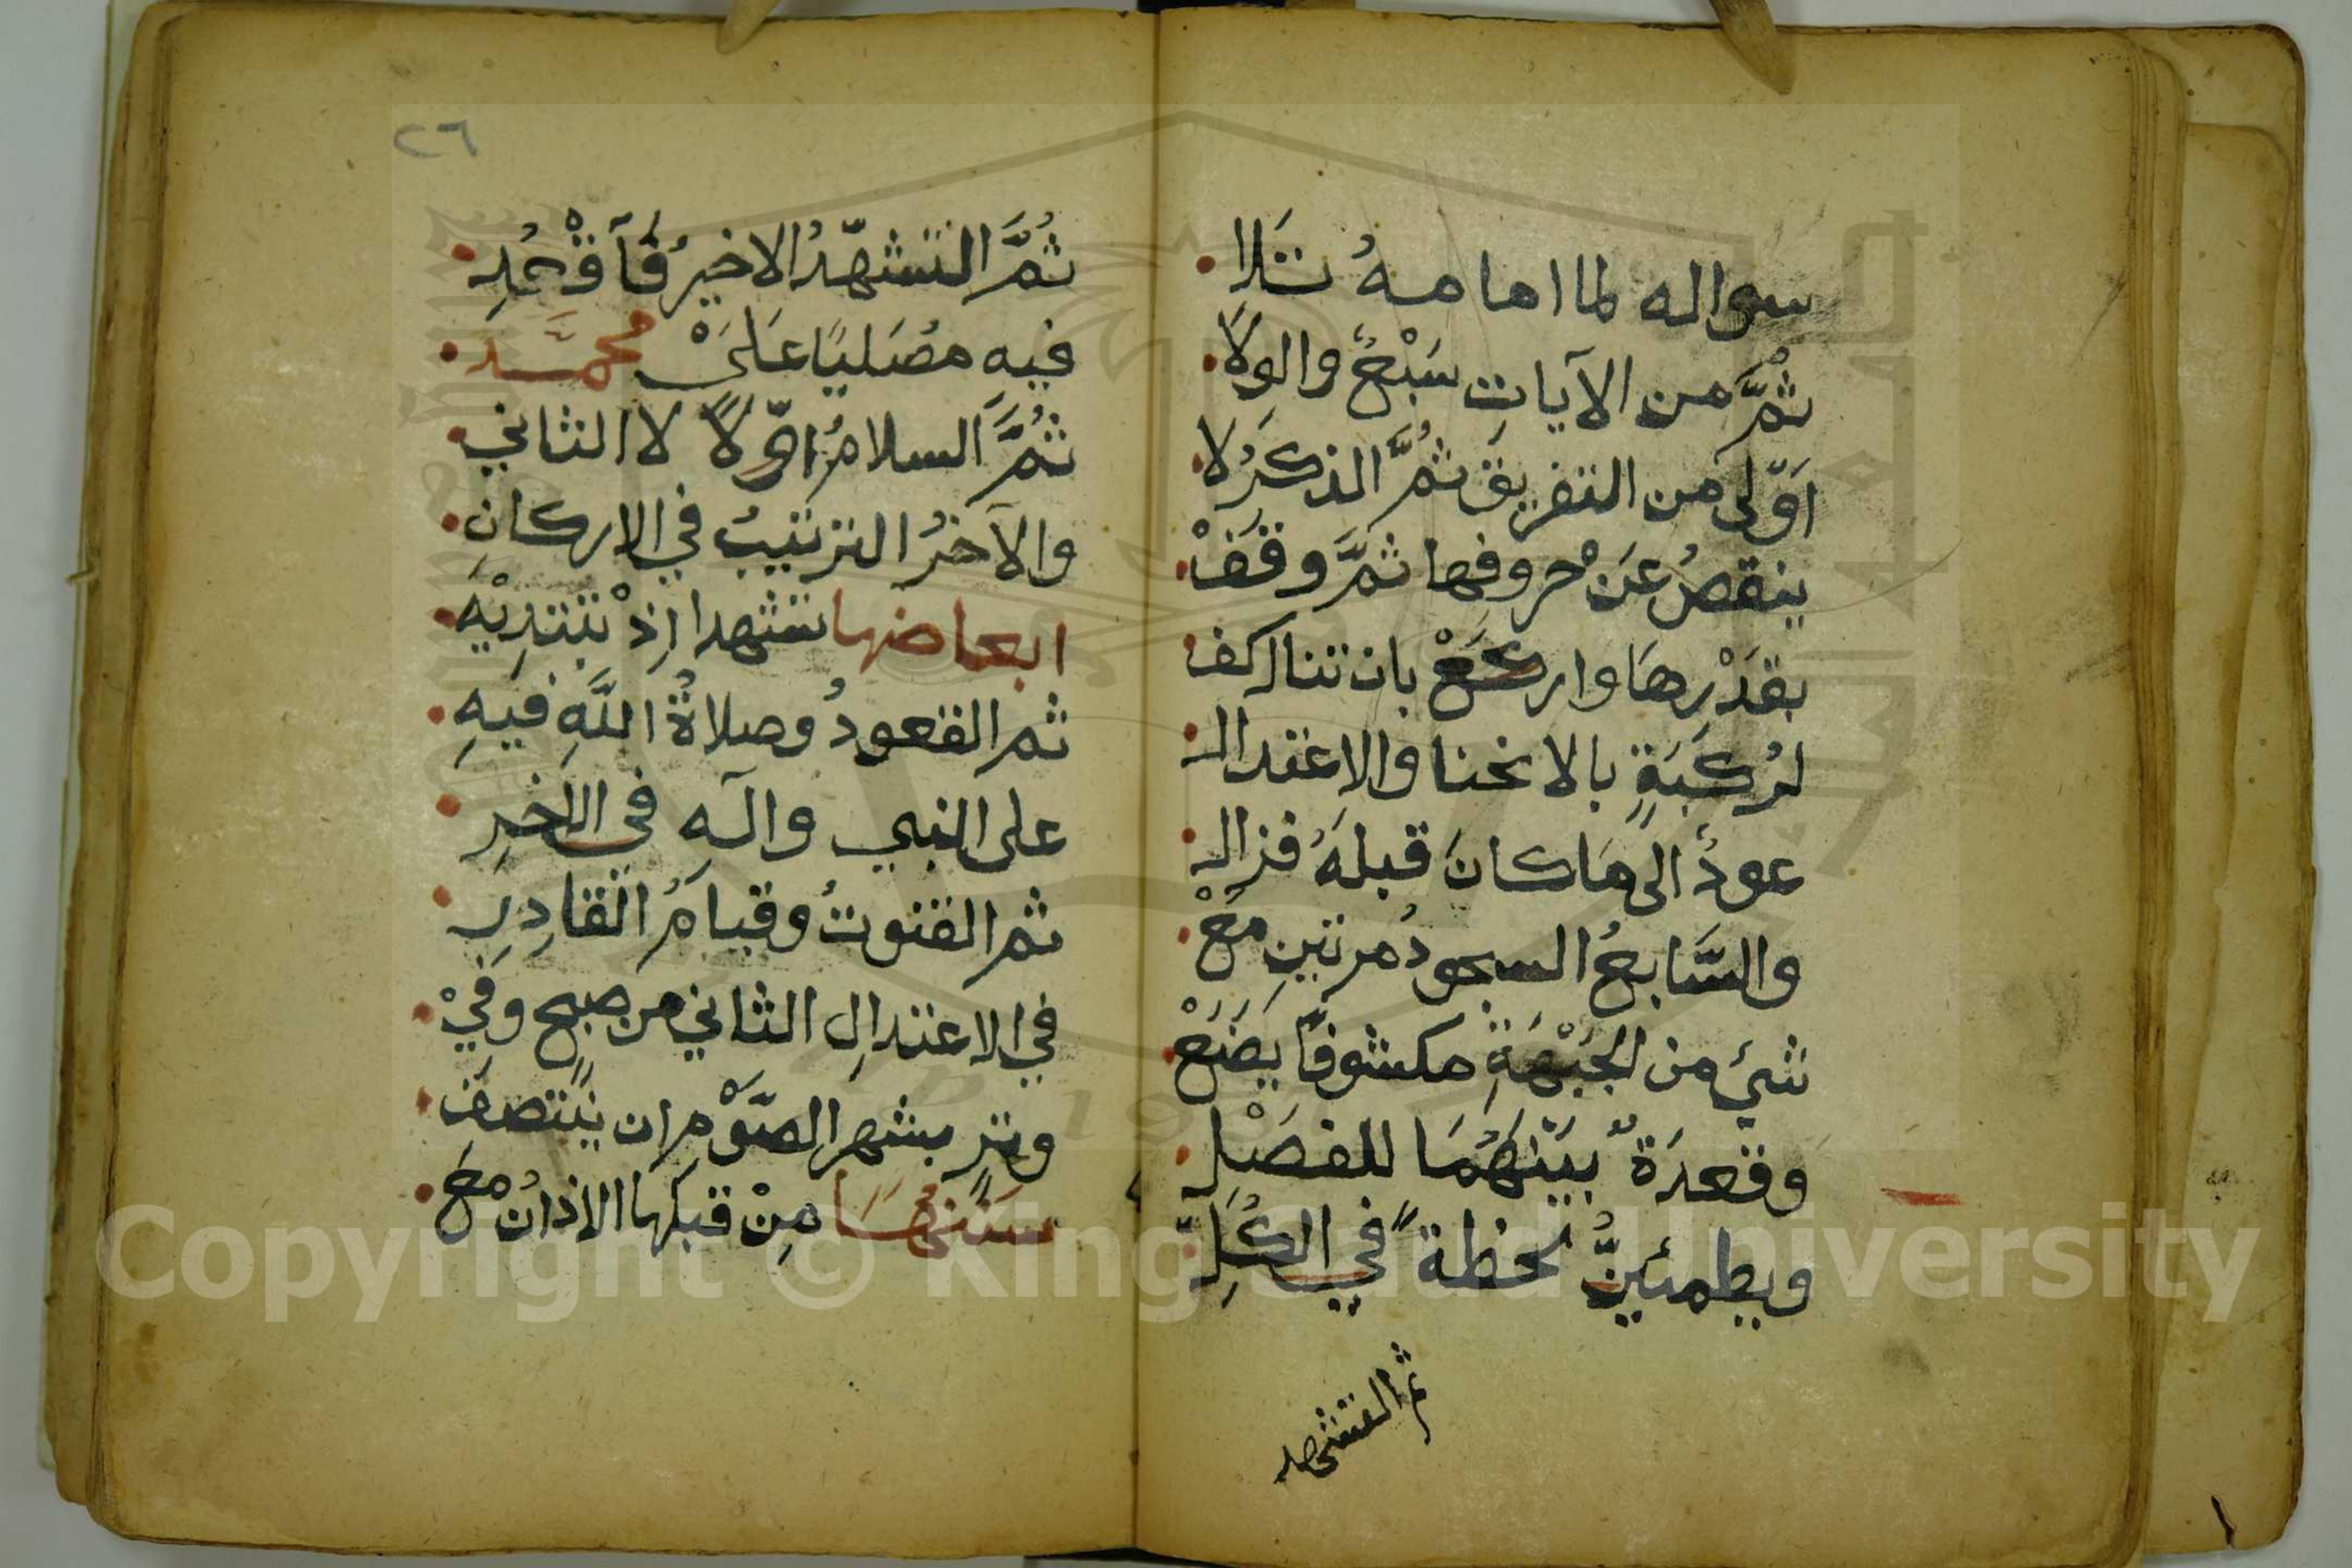 سواله لما امامه تلا
ثُمَّ من الآياتِ سَبْعٌ والوِلَا
اَوّلى من التفريق ثُمَّ الذكرُ لا
ينقصُ عَن حروفِها ثمَّ وقفْ
بقدْرِها واركعْ بان تنال كف
لرُكبَةٍ بالانحنا والاعتدال
عودٌ الى ما كانَ قبلهُ فزال
والسَّابعُ السجودُ مرتين مَعْ
شيَ من الجَبْهَةِ مكشوفًا يضَعْ
وقعدَةٌ بينهُمَا للفصْلِ
ويطمئِنُّ لحظةً في الكُلِّ
ثم التشهد
٢٦
ثُمَّ التشهّدُ الاخيرُ فَآقْعُدِ
فيهِ مصَليًا عَلَىْ مُحمَّد
ثُمَّ السلامُ اوّلًا لا الثاني
والآخرُ الترتيبُ في الاركانِ
ابعاضها تشهد اإِذْ تبْتَدِيْهَ
ثم القعودُ وصلاةُ اللَّهِ فيهِ
على النبي والهِ في الاخِرِ
ثم القنوتُ وقيامُ القادِرِ
في الاعتدالِ الثاني من صبح وفيْ
وترٍ بشهر الصَّوْمِ ان ينتصفَ
سننها مِنْ قبلها الاذانُ معَ
Copyright © King Saud University